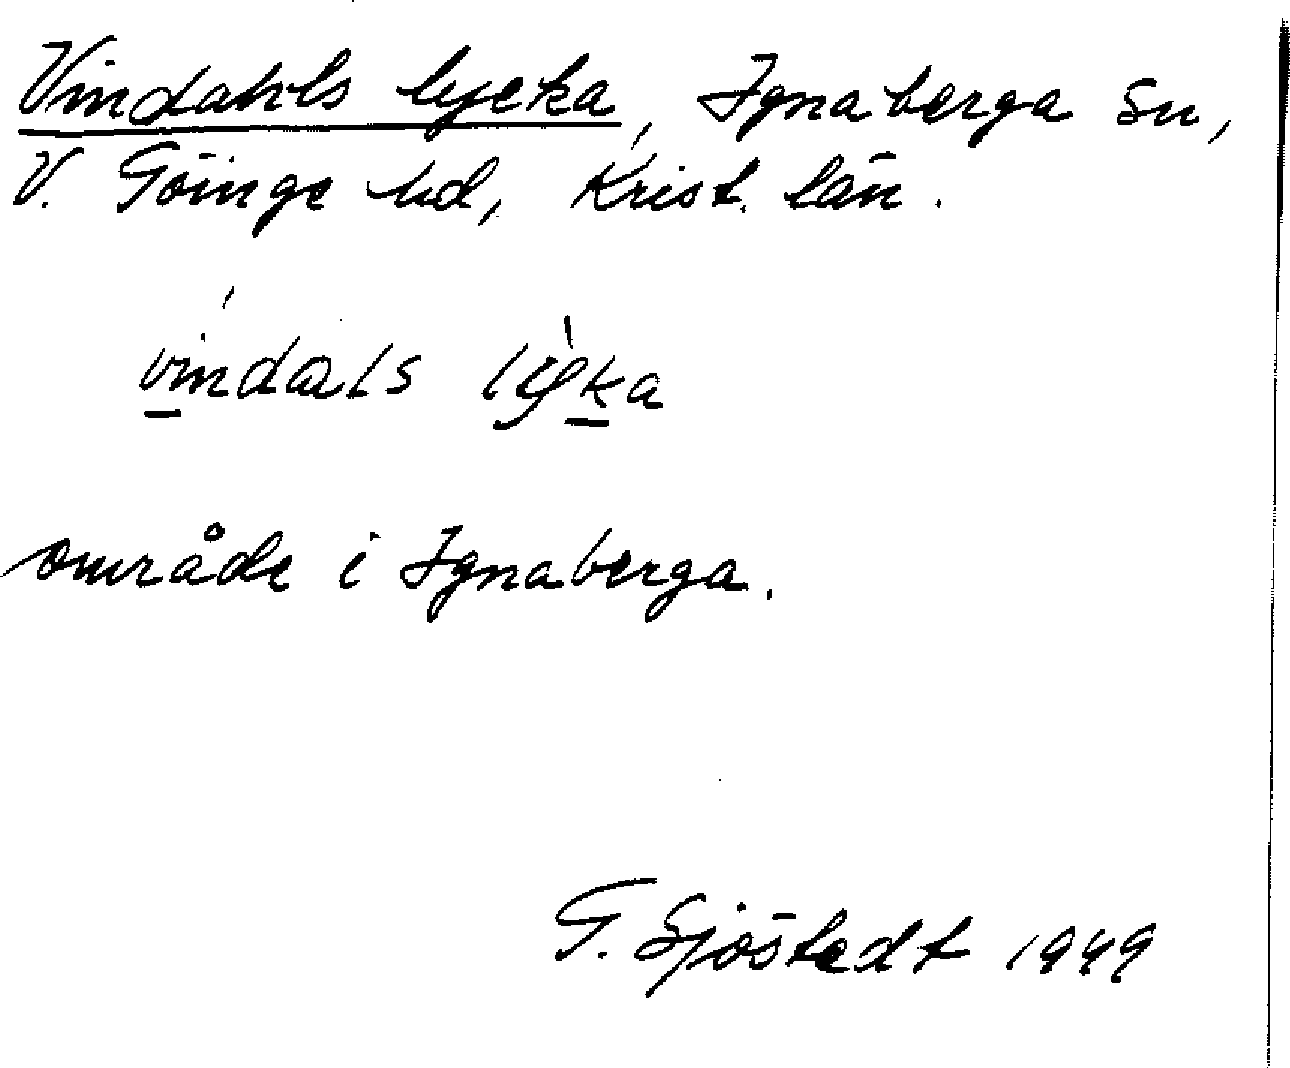 Vindahls lycka, Ignaberga Sn,
V. Göinge hd, Krist. län.
vindals lyka
område i Ignaberga.
G. Sjöstedt 1949